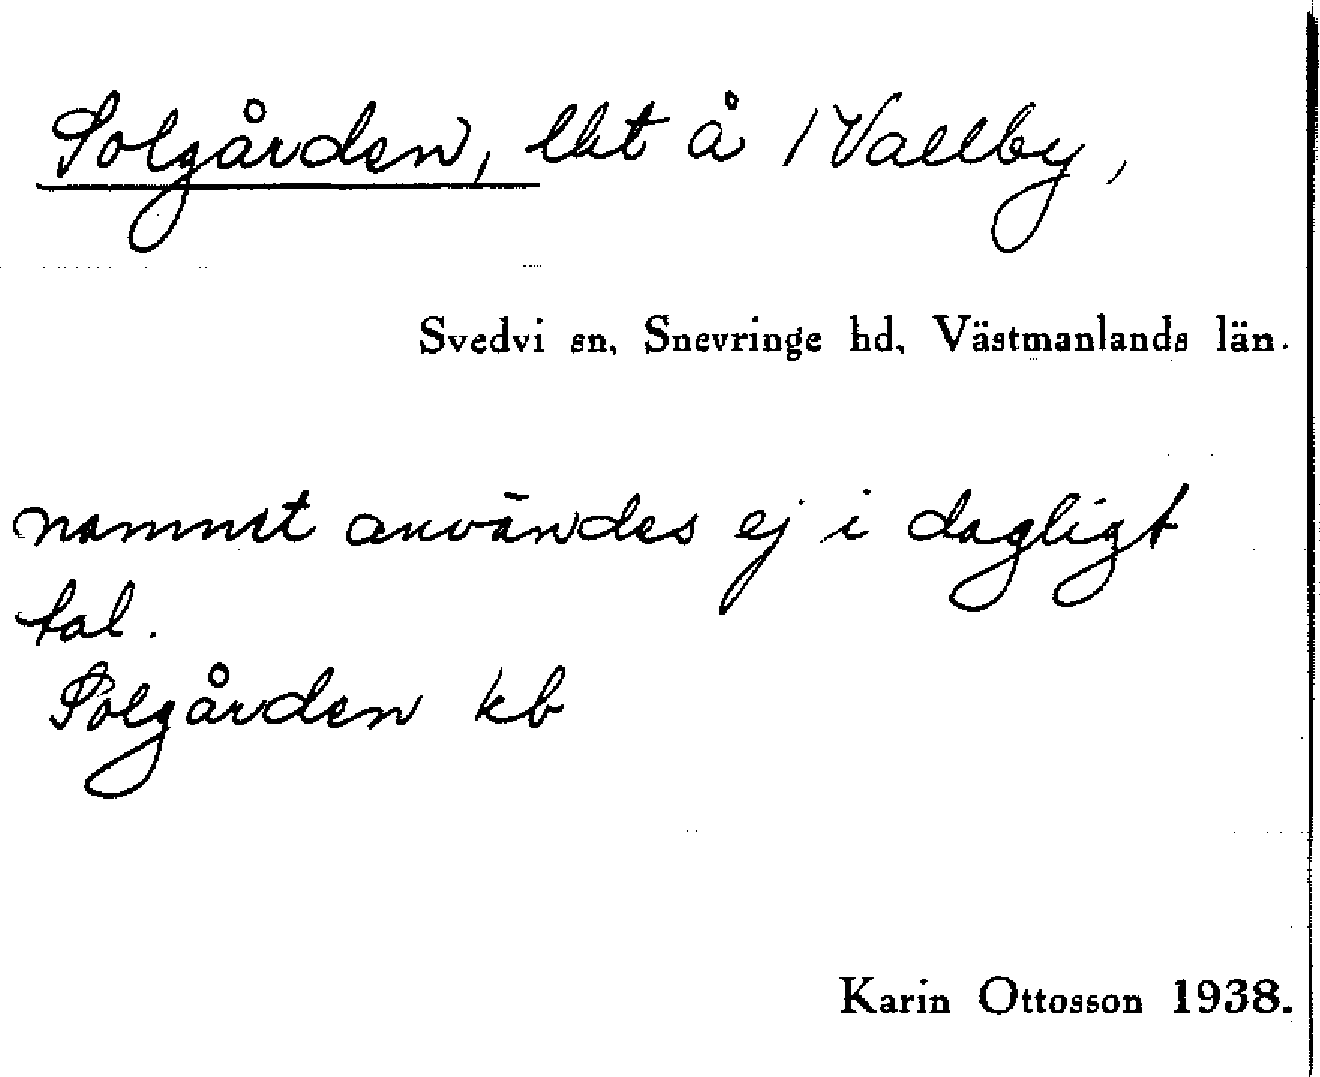 Solgården, lht å 1 Vallby,
Svedvi sn, Snevringe hd, Västmanlands län.
namnet användes ej i dagligt
tal.
Solgården kb
Karin Ottosson 1938.